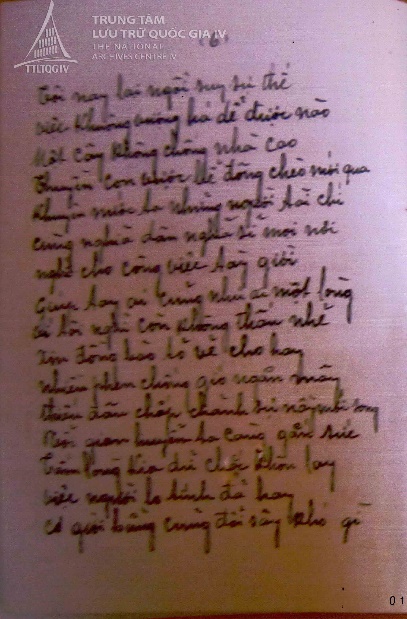 TRUNG TÂM
LƯU TRỮ QUỐC GIA IV
THE NATIONAL
ARCHIVES CENTRE IV
TTLTQGIV
(6)
Tôi nay lại ngồi suy sự thế
việc không vuông há dể được nào
Một cây không chống nhà cao
Thuyền con vượt bể đông chèo mới qua
Khuyên nước ta những người tài chí
cùng nghĩa dân nghĩa sĩ mọi nơi
nghề cho công việc tày giời
Giúp tay ai cũng như ai một lòng
lời nghĩ còn không thấu nhẽ
Xin đồng bào tỏ vẽ cho hay
nhiều phen chống gió ngăn mây
dân chấp chánh sự này mới song
quan huyện ta càng gắn sức
Tấm lòng kia dù chớ lay
việc người lo tính đã hay
có giời cũng đời này khó gì
01